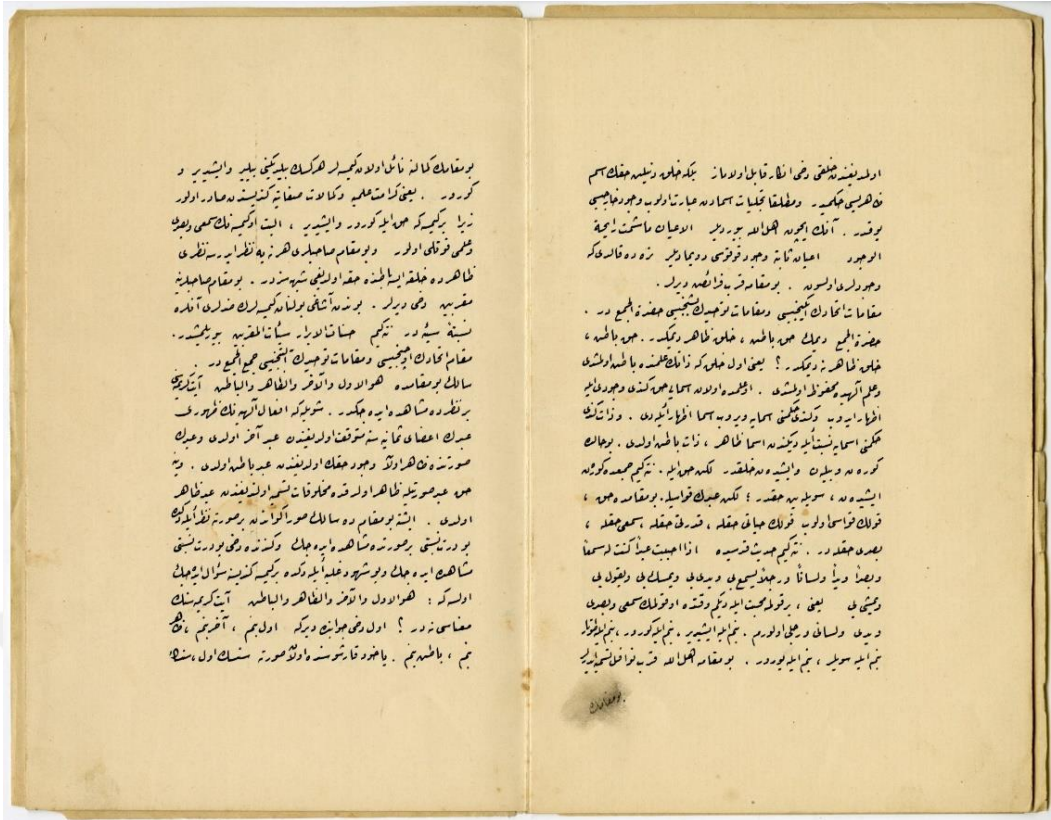 اولديغندن خلقى دخى انكار قابل اولاماز بلكه خلق دنيلن حقك اسم
ظاهريسى حكميدر ومطلقا تجليات اسمادن عبارت اولوب وجود خارجيسى
يوقدر . آنك ايچون اهل الله بيورديلر الاعيان ما شمت رايحة
الوجود اعيان ثابته وجود قوقوسى دويماديلر نره ده قالدى كه
وجودلرى اولسون . بومقامه قرب فرائض ديرلر .
مقامات اتحادك ايكنجيسى ومقامات توحيدك بشنجيسى حضرة الجمع در .
حضرة الجمع ديمك حق باطن ، خلق ظاهر ديمكدر . حق باطن ،
خلق ظاهر نه ديمكدر ؟ يعنى اول خلق كه ذاتك علمنده باطن اولمشدى
وعلم الهيده محفوظ اولمشدى . او علمده اولان اسمايه حق كندى وجودى ايله
اظهار ايدوب وكندى حكمنى اسمايه ويروب اسما اظهار ايلدى . وذات كندى
حكمنى اسمايه نسبت ايله ديكندن اسما ظاهر ، ذات باطن اولدى . بوحالده
كورن و بيلن وايشيدن خلقدر لكن حق ايله . نته كيم جمعده كورن
ايشيدن ، سويلين حقدر ؛ لكن عبدك قواسيله . بومقامده حق ،
قولك قواسى اولوب قولك حياتى حقله ، قدرتى حقله ، سمعى حقله ،
بصرى حقله در . نته كيم حديث قدسيده اذا احببت عبدا كنت له سمعا
وبصرا ويدا ولسانا ورجلا فبى يسمع وبى يبصر وبى
وبى يمشى يعنى ، بر قولمه محبت ايله ديكم وقتده او قولمك سمعى وبصرى
ويدى ولسانى ورجلى اولورم . بنم ايله ايشيدير ، بنم ايله كورور ، بنم ايله طوتار
بنم ايله سويلر ، بنم ايله يورور . بومقامه اهل الله قرب نوافل تسميه ايديلر
بومقامك
بومقامك كمالنه نائل اولان كيمسه لر هركسك بيلديكنى بيلير وايشيدير و
كورور . يعنى كرامت علميه وكمالات صفاتيه كنديسندن صادر اولور
زيرا بر كيمسه كه حق ايله كورور وايشيدير ، البت او كيمسه نك سمعى وبصرى
وعلمى قوتلى اولور وبومقام صاحبلرى هر نه يه نظر ايدرسه نظرى
ظاهرده خلقه ايسه باطنده حقه اولديغى شبهه سزدر . بومقام صاحبلرينه
مقربين دخى ديرلر . بوندن آشاغى بولنان كيمسه لرك حسنه لرى آنلره
نسبتله سيئه در نته كيم حسنات الابرار سيئات المقربين بيورلمشدر .
مقام اتحادك اوچنجيسى ومقامات توحيدك آلتنجيسى جمع الجمع در .
سالك بومقامده هو الاول والآخر والظاهر والباطن آيت كريمه سنى
بر نظرده مشاهده ايده جكدر . شويله كه افعال الهيه نك ظهورى
عبدك اعضاى ثمانيه سنه متوقف اولديغندن عبد آخر اولدى وعبدك
صورتنده ظاهر اولان وجود حقك اولديغندن عبد باطن اولدى . وينه
حق عبد صورتيله ظاهر اولدقده مخلوقات تسميه اولنديغندن عبد ظاهر
اولدى . ايشته بومقامده سالك صور اكواندن بر صورته نظر ايلدكده
بو درت نسبتى بر صورتده مشاهده ايده جك وكندنده دخى بو درت نسبتى
مشاهده ايده جك وبو شهود غلبه ايله دكده بر كيمسه كندينه سؤال ايده جك
اولسه كه : هو الاول والآخر والظاهر والباطن آيت كريمه سنك
معناسى نه در ؟ اول دخى جوابنده ديركه اول بنم ، آخر بنم ، ظاهر
بنم ، باطن بنم . ياخود قارشوسنده اولان صورته سنسك اول ،